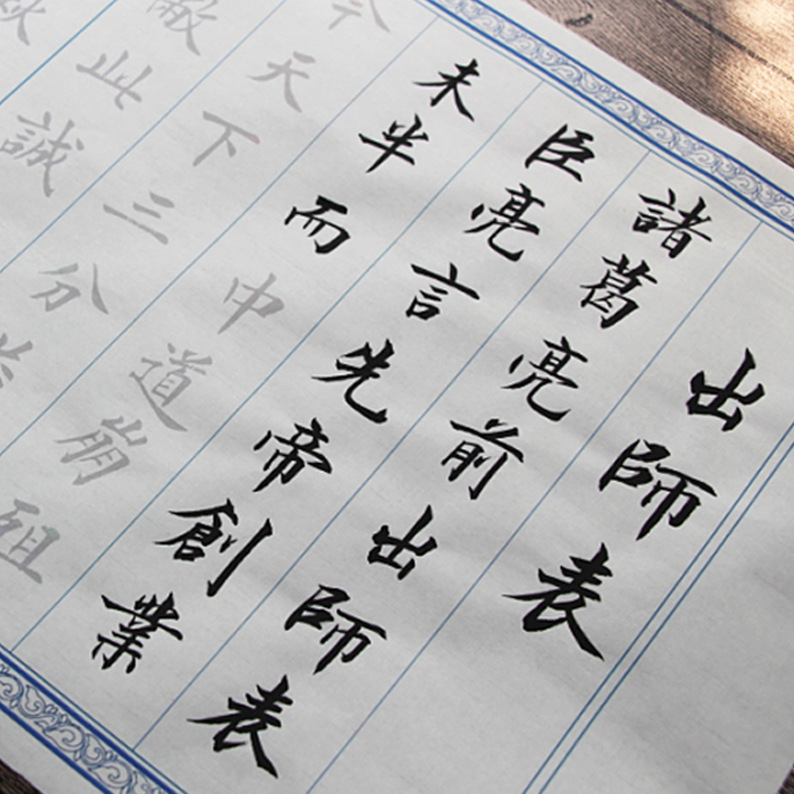 出師表
諸葛亮前出師表
臣亮言先帝創業
未半而中道崩殂
今天下三分
敝此誠
秋